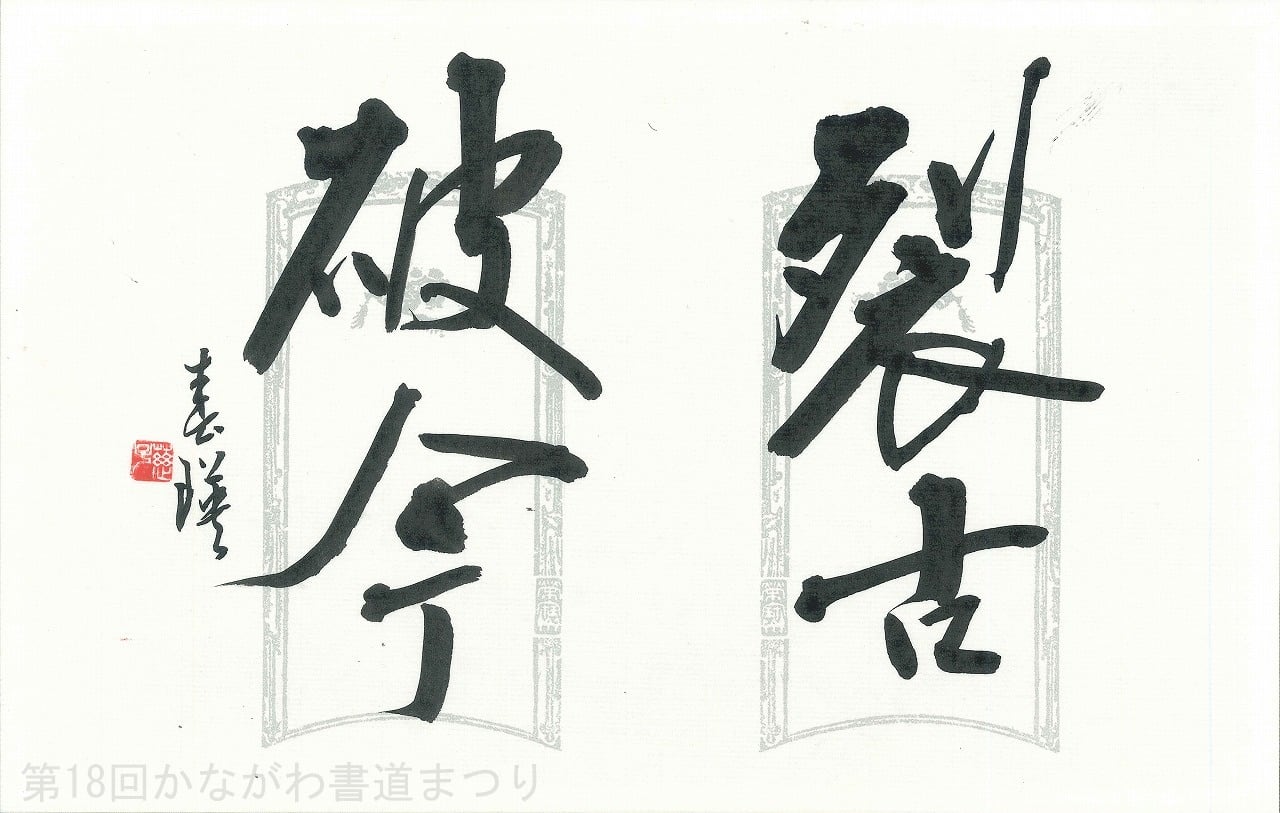 裂古
破今
春瑛
第18回かながわ書道まつり